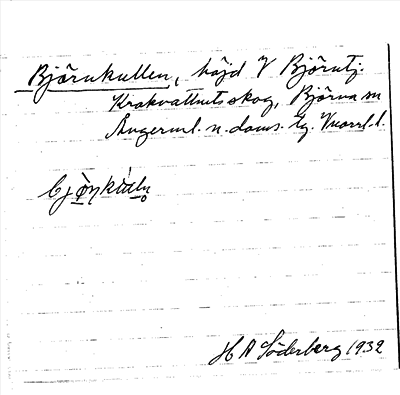 Björnkullen, höjd V Björntj.
Krokvattnets skog, Björna sn
Ångerml. n. doms. tg. Vnorrl. l.
H A Söderberg 1932